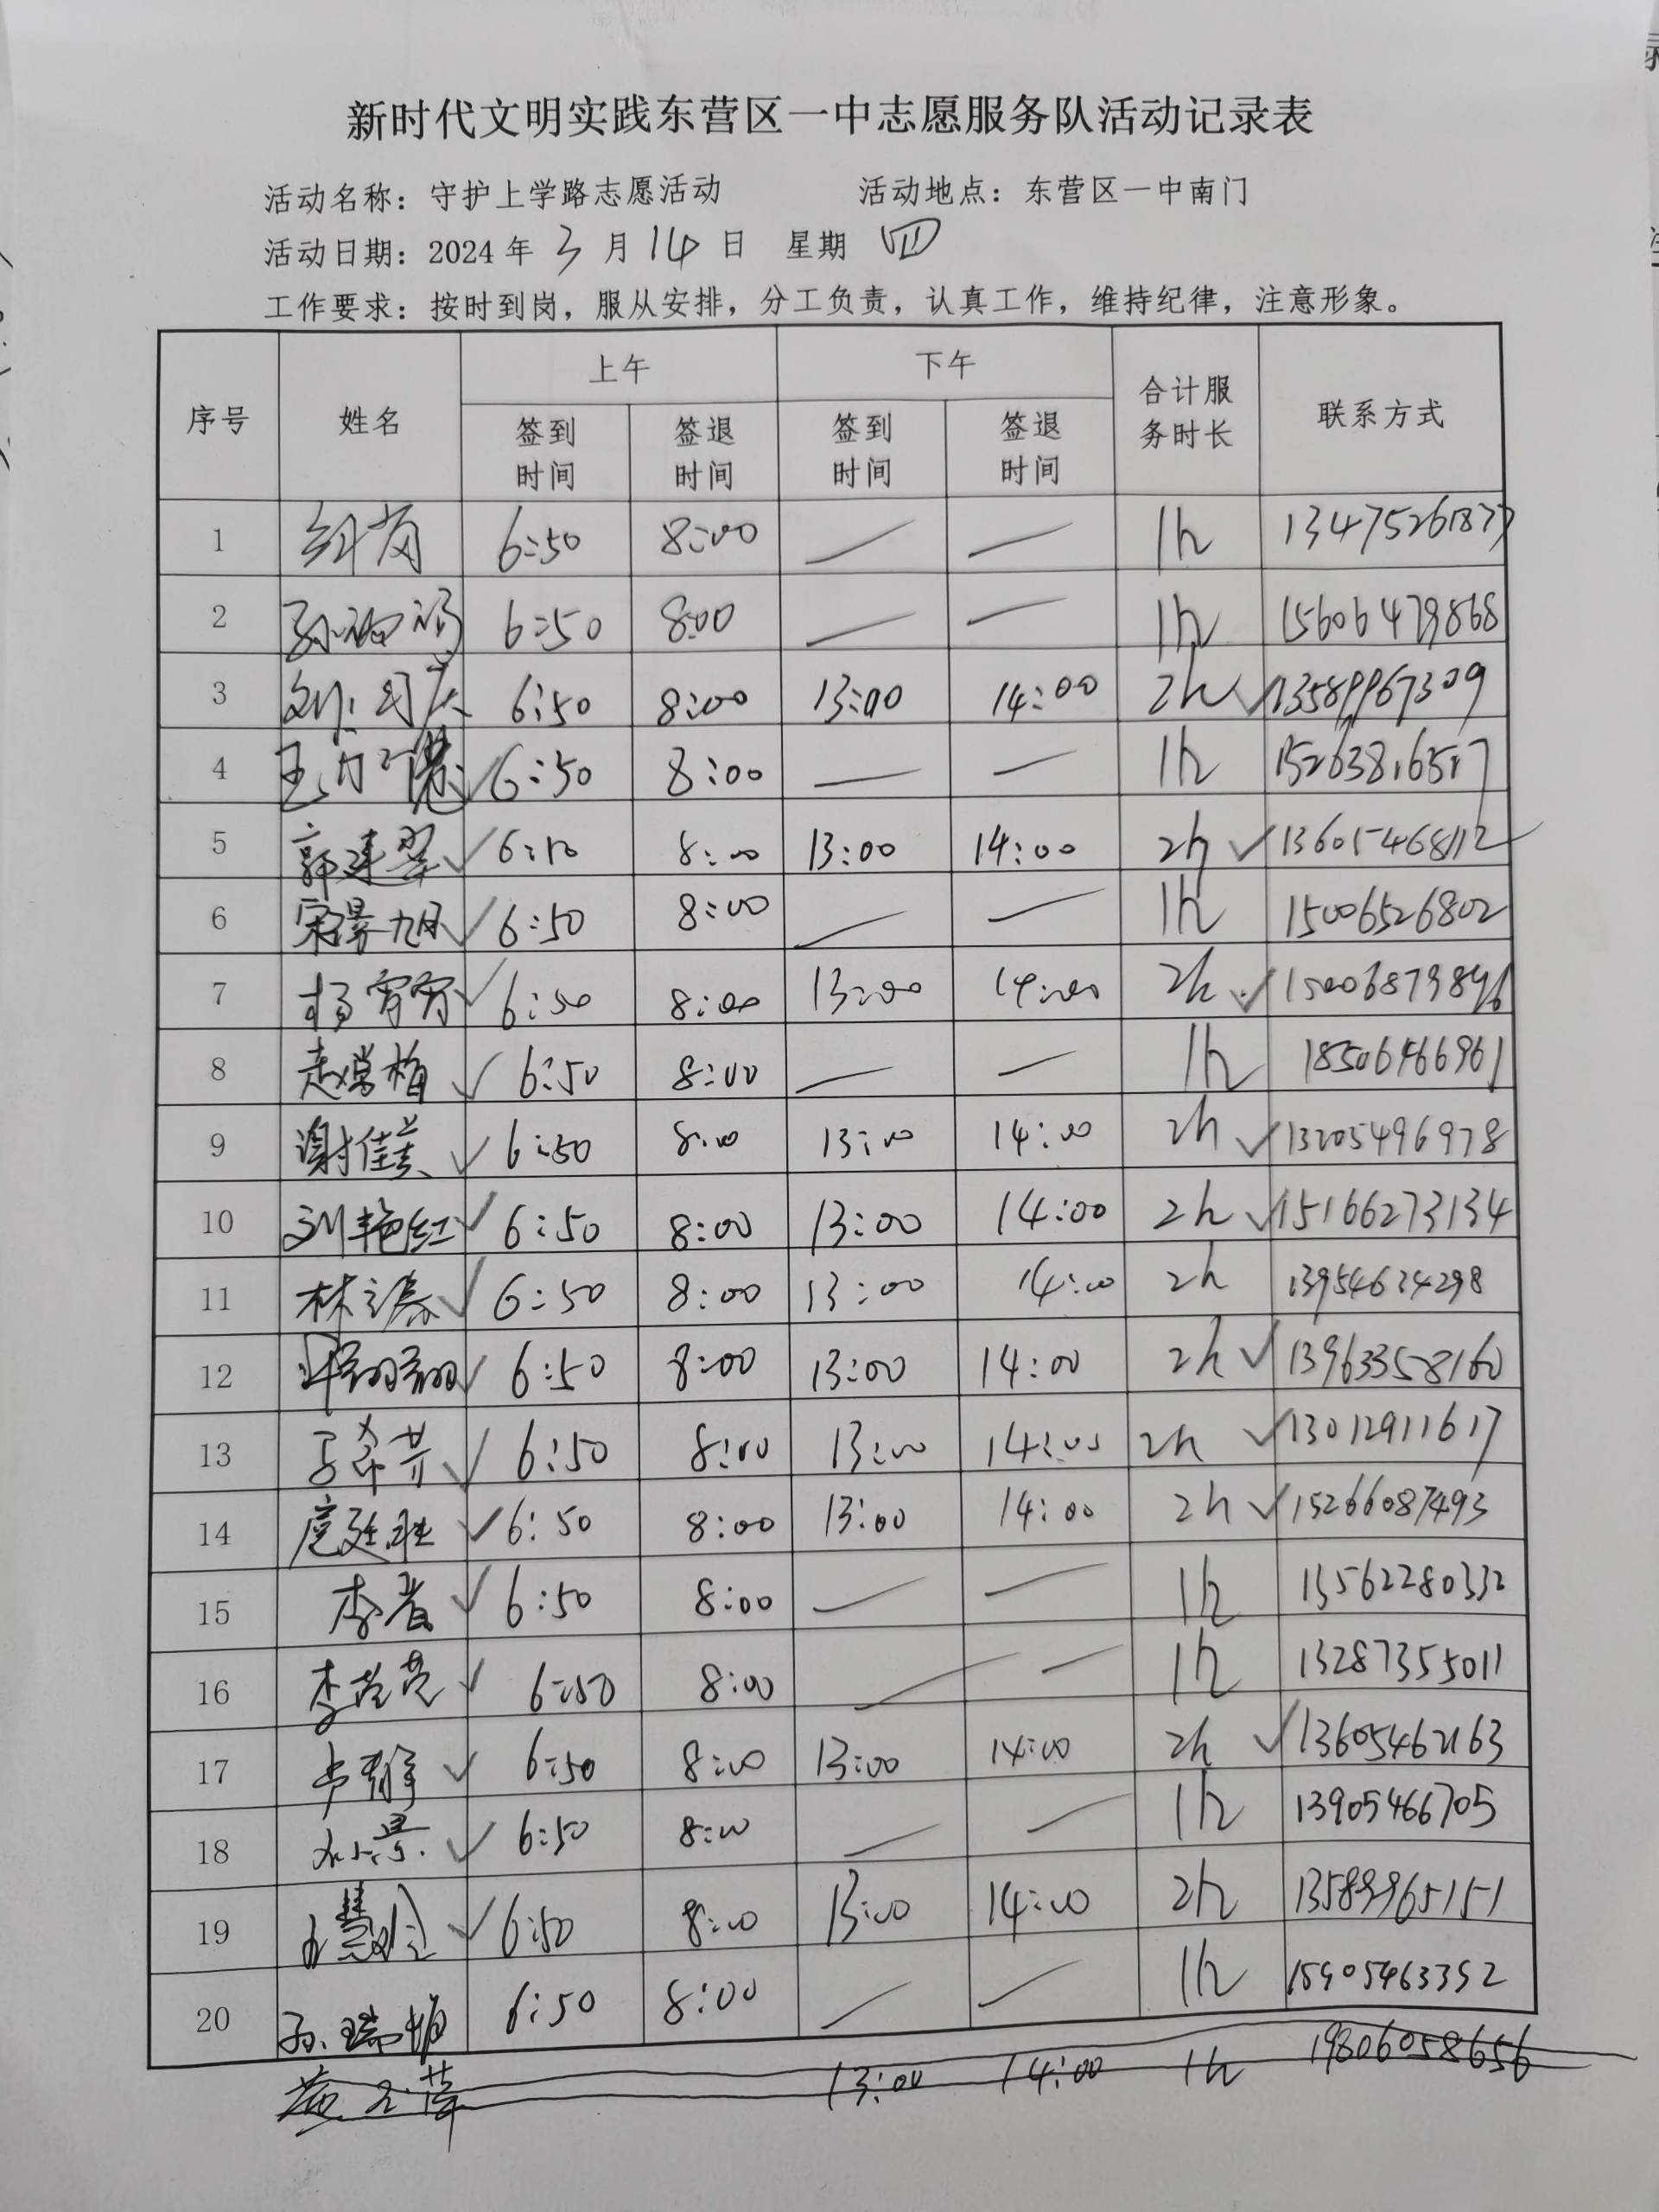 新时代文明实践东营区一中志愿服务队活动记录表
活动名称：守护上学路志愿活动 活动地点：东营区一中南门
活动日期：2024年3月14日 星期四
工作要求：按时到岗，服从安排，分工负责，认真工作，维持纪律，注意形象。
序号 姓名 上午 下午 合计服务时长 联系方式
签到时间 签退时间 签到时间 签退时间
1 6:50 8:00 — — 1h
2 6:50 8:00 — — 1h 15606479868
3 6:50 8:00 13:00 14:00 2h ✓ 13589967309
4 ✓ 6:50 8:00 — — 1h
5 郭建翠 ✓ 6:10 8:00 13:00 14:00 2h ✓ 13605468112
6 ✓ 6:50 8:00 — — 1h 15006526802
7 杨宵宵 ✓ 6:50 8:00 13:00 14:00 2h ✓ 15006873896
8 ✓ 6:50 8:00 — — 1h 18506466961
9 谢佳美 ✓ 6:50 8:00 13:00 14:00 2h ✓ 13205496978
10 刘艳红 ✓ 6:50 8:00 13:00 14:00 2h ✓ 15166273134
11 ✓ 6:50 8:00 13:00 14:00 2h 13954634298
12 ✓ 6:50 8:00 13:00 14:00 2h ✓ 13963358160
13 ✓ 6:50 8:00 13:00 14:00 2h ✓ 13012911617
14 ✓ 6:50 8:00 13:00 14:00 2h ✓ 15266087493
15 ✓ 6:50 8:00 — — 1h 13562280332
16 ✓ 6:50 8:00 — — 1h 13287355011
17 ✓ 6:50 8:00 13:00 14:00 2h ✓ 13605462163
18 ✓ 6:50 8:00 — — 1h 13905466705
19 ✓ 6:50 8:00 13:00 14:00 2h 13589965151
20 6:50 8:00 — — 1h 15905463352
13:00 14:00 1h 19806058656